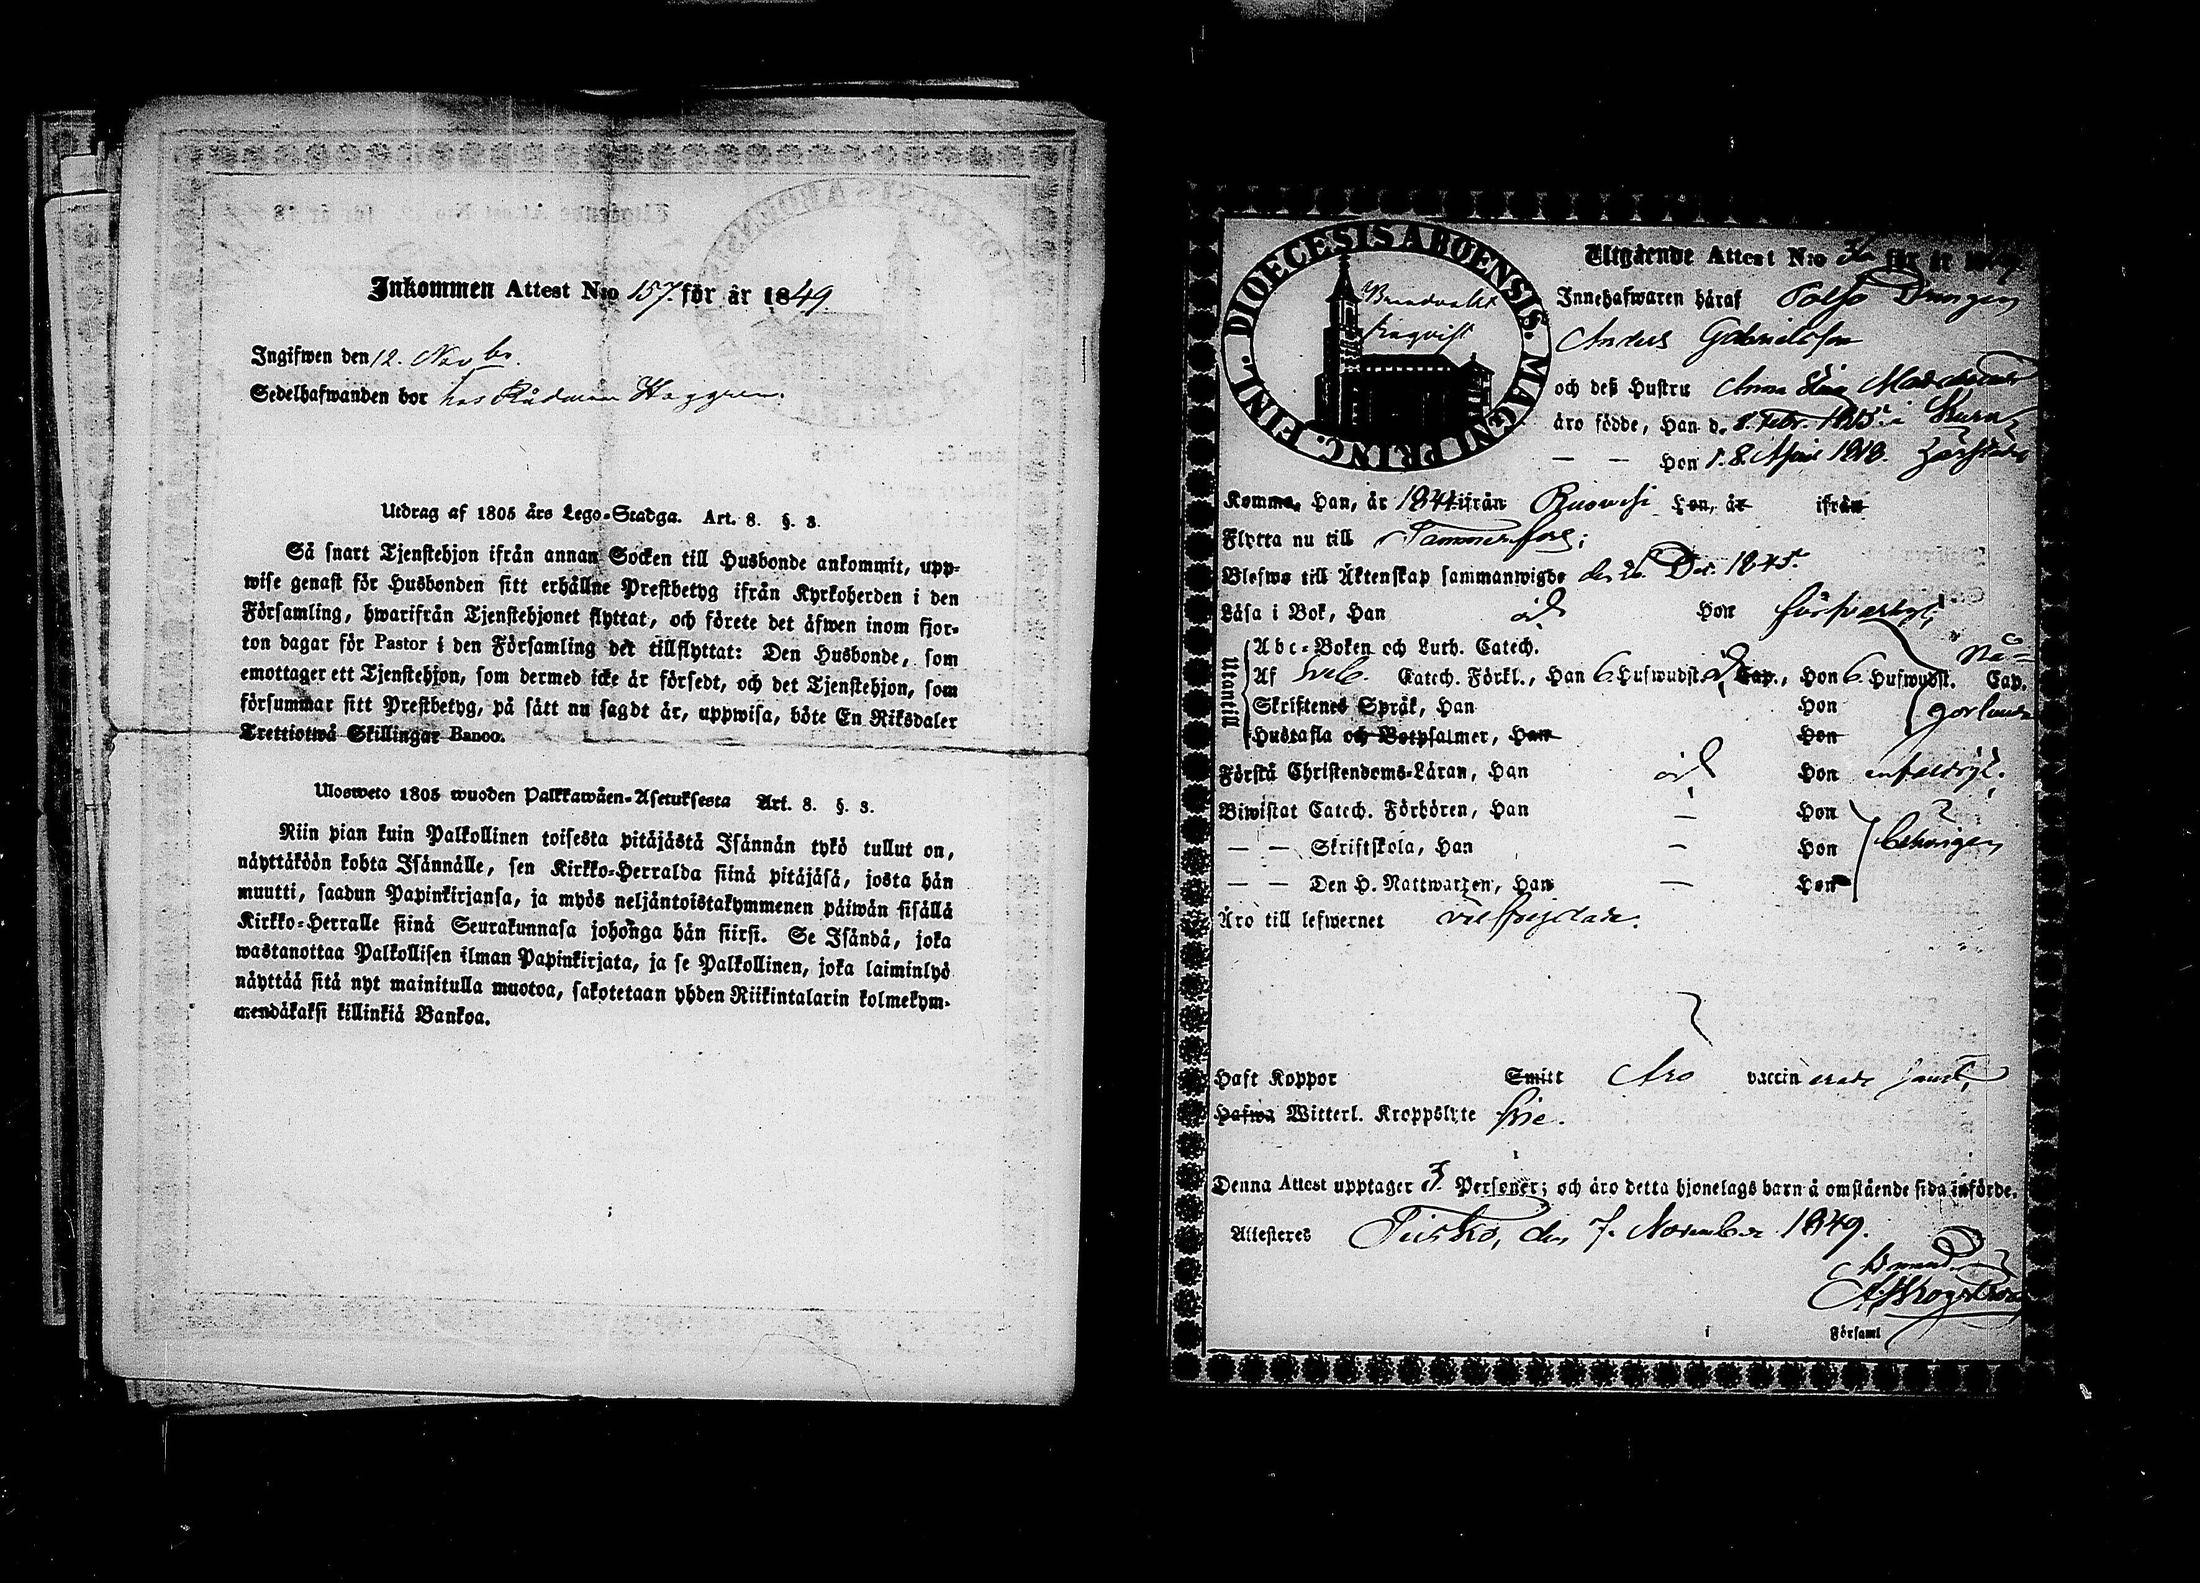 Inkommen Attest N:o 157. för år 1849.
Ingifwen den 12. Novbr.
Sedelhafwanden bor hos Rådman Haggren.
Utdrag af 1805 års Lego-Stadga. Art. 8. §. 3.
Så snart Tjenstehjon ifrån annan Socken till Husbonde ankommit, upp-
wise genast för Husbonden sitt erhållne Prestbetyg ifrån Kyrkoherden i den
Församling, hwarifrån Tjenstehjonet flyttat, och förete det äfwen inom fjor-
ton dagar för Pastor i den Församling det tillflyttat: Den Husbonde, som
emottager ett Tjenstehjon, som dermed icke är försedt, och det Tjenstehjon, som
försummar sitt Prestbetyg, på sätt nu sagdt är, uppwisa, böte En Riksdaler
Trettiotwå Skillingar Banco.
Ulosweto 1805 wuoden Palkkawäen-Asetuksesta Art. 8. §. 3.
Niin pian kuin Palkollinen toisesta pitäjästä Isännän tykö tullut on,
näyttäköön kohta Isännälle, sen Kirkko-Herralda siinä pitäjäsä, josta hän
muutti, saadun Papinkirjansa, ja myös neljäntoistakymmenen päiwän sisällä
Kirkko-Herralle siinä Seurakunnasa johonga hän siirsi. Se Isändä, joka
wastanottaa Palkollisen ilman Papinkirjata, ja se Palkollinen, joka laiminlyö
näyttää sitä nyt mainitulla muotoa, sakotetaan yhden Riikintalarin kolmekym-
mendäkaksi killinkiä Bankoa.
DIOECESIS ABOENSIS. MAGNI PRINC. FINL.
Utgående Attest N:o för år
Innehafwaren häraf Drängen
Anders Gabrielsson
och deß Hustru Anna
äro födde, Han d. 8. Febr. i
— — Hon d. 8. April 1818.
Komma, Han, år 1844 ifrån Ruovesi Hon, år ifrån
Flytta nu till Tammerfors;
Blefwo till Äktenskap sammanwigde den 26. Dec. 1845.
Läsa i Bok, Han Hon försvarligt
Utantill
Abc-Boken och Luth. Catech.
Af Sveb. Catech. Förkl., Han 6 Hufwudst. Cap., Hon 6. Hufwudst. Cap.
Skriftenes Språk, Han Hon
Hustafla och Botpsalmer, Han Hon
Förstå Christendoms-Läran, Han Hon enfaldigt.
Biwistat Catech. Förhören, Han — Hon
— — Skriftskola, Han — Hon behörigen
— — Den H. Nattwarden, Han — Hon
Äro till lefwernet välfrejdade.
Haft Koppor Smitt Äro vaccinerade samt,
Hafwa Witterl. Kroppslyte frie.
Denna Attest upptager 3. Personer; och äro detta hjonelags barn å omstående sida införde.
Attesteres den 7. November 1849.
Församl